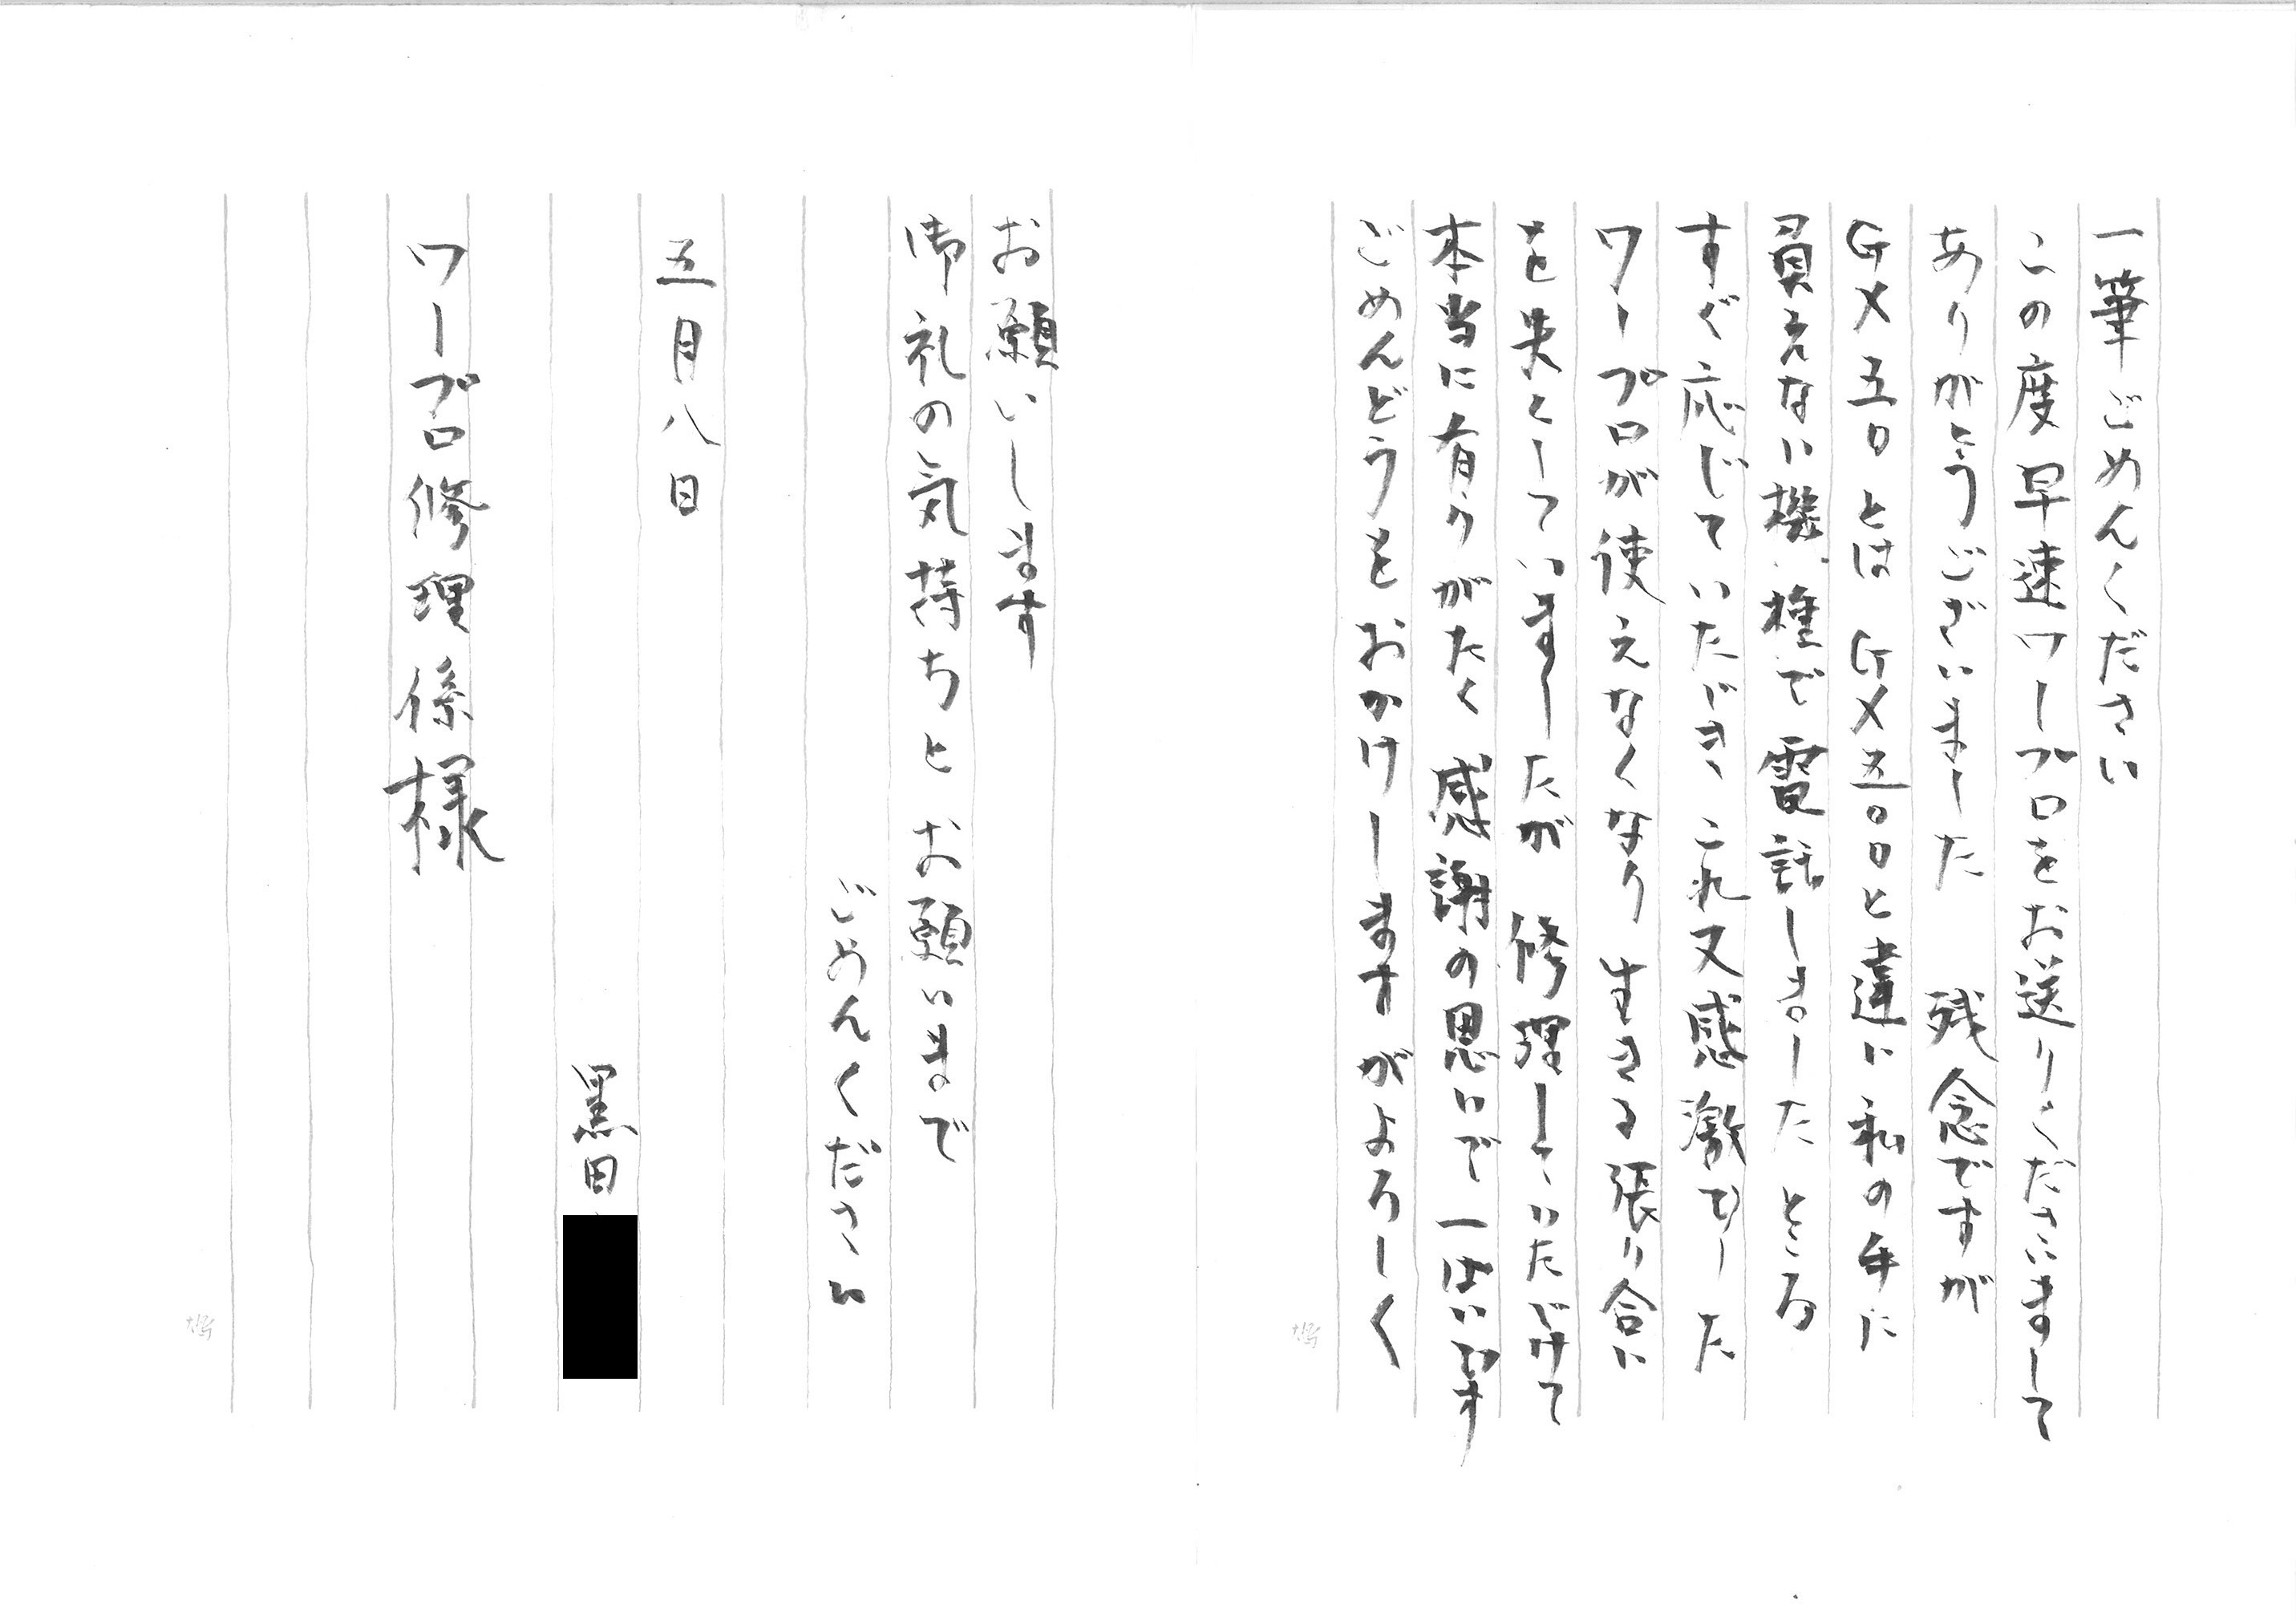 一筆ごめんください
この度早速ワープロをお送りくださいまして
ありがとうございました 残念ですが
GX五〇とはGX五〇〇と違い私の手に
負えない機種で電話しましたところ
すぐ応じていただき、これ又感激でした
ワープロが使えなくなり生きる張り合い
を失くしていましたが 修理していただけて
本当に有りがたく感謝の思いで一ぱいです
ごめんどうをおかけしますがよろしく
お願いします
御礼の気持ちとお願いまで
ごめんください
五月八日
黒田
ワープロ修理係様